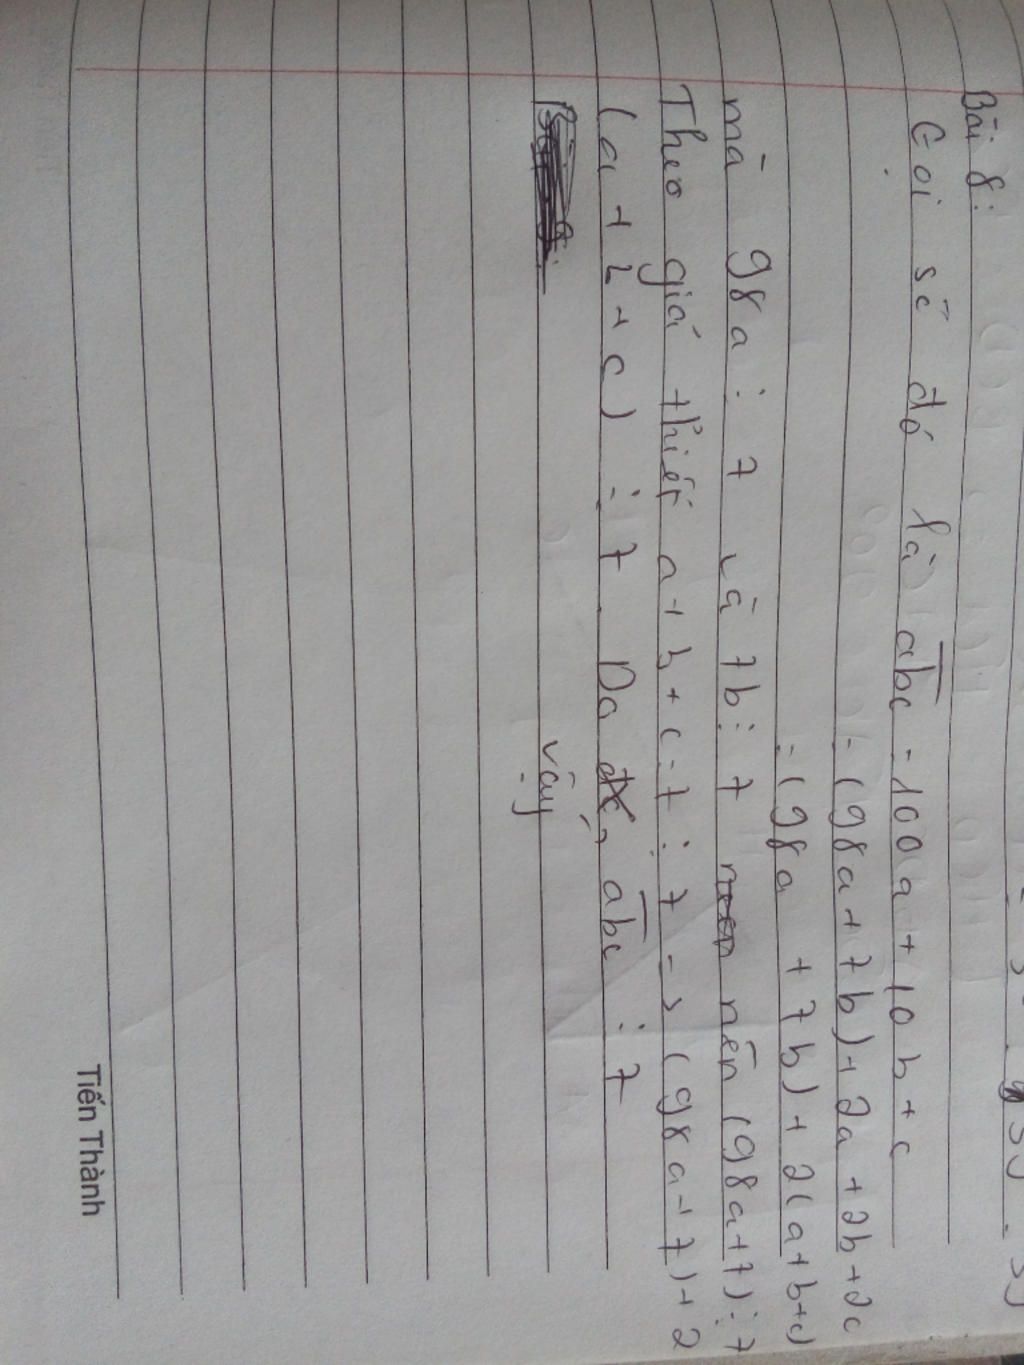 Bài 8:
Gọi số đó là abc = 100a + 10b + c
= (98a + 7b) + 2a + 2b + 2c
= (98a + 7b) + 2(a + b + c)
mà 98a ⋮ 7 và 7b ⋮ 7 nên (98a + 7) ⋮ 7
Theo giả thiết a + b + c = 7 ⋮ 7 -> (98a + 7) + 2
(a + b + c) ⋮ 7. Do vậy, abc ⋮ 7
Tiến Thành